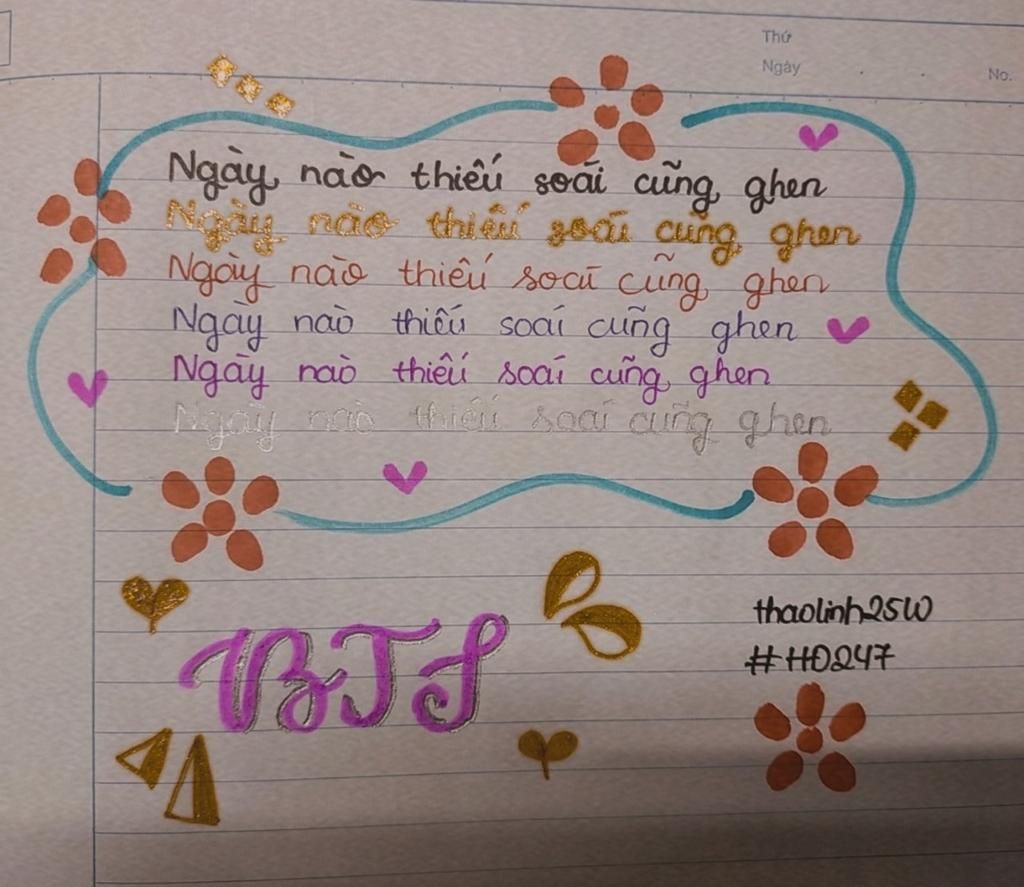 Thứ
Ngày
No.
Ngày nào thiếu soái cũng ghen
Ngày nào thiếu soái cũng ghen
Ngày nào thiếu soái cũng ghen
Ngày nào thiếu soái cũng ghen
Ngày nào thiếu soái cũng ghen
Ngày nào thiếu soái cũng ghen
BTS
thaolinh25W
#HD247